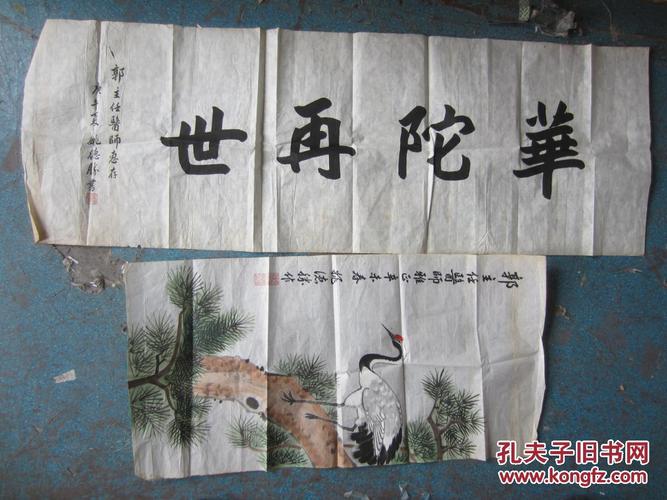 華陀再世
郭主任醫師惠存
庚午
郭主任醫師雅正辛未春
作
孔夫子旧书网
www.kongfz.com